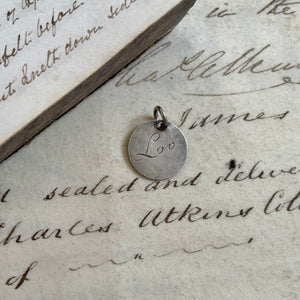 of
felt before
but Kneth down
in the
Chas Atkins
James
Loo
sealed and deliver
Charles Atkins
of